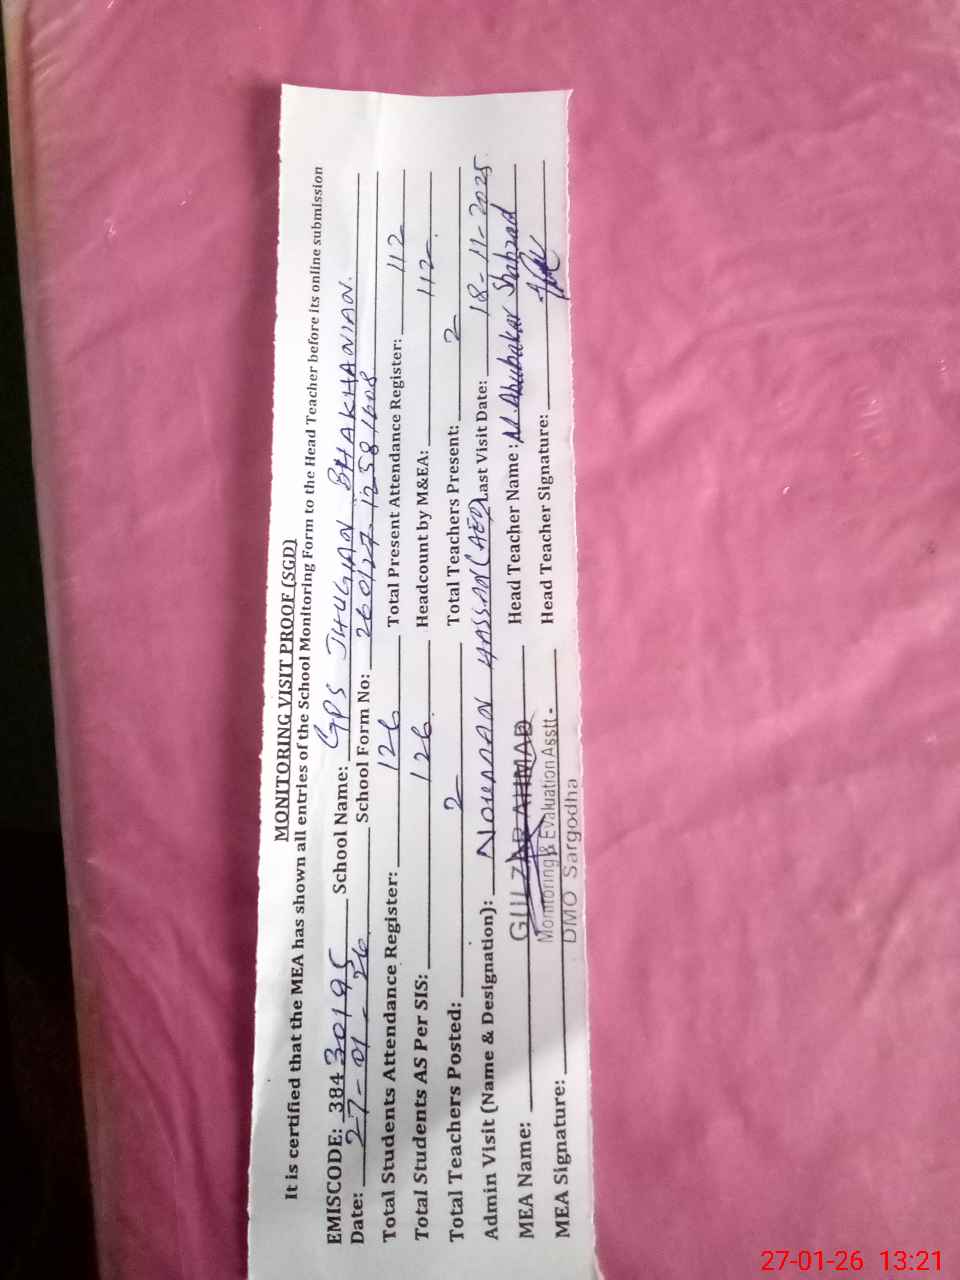 MONITORING VISIT PROOF (SGD)
It is certified that the MEA has shown all entries of the School Monitoring Form to the Head Teacher before its online submission
EMISCODE: 38430195 School Name: GPS JHUGIAN BHAKHANIAN.
Date: 27-01-26. School Form No: 260127-12581608
Total Students Attendance Register: 126 Total Present Attendance Register: 112
Total Students AS Per SIS: 126. Headcount by M&EA: 112.
Total Teachers Posted: 2 Total Teachers Present: 2
Admin Visit (Name & Designation): NOUMAN HASSAN (AEO) Last Visit Date: 18-11-2025.
MEA Name: GULZAR AHMAD Head Teacher Name: M. Abubakar Shahzad
Monitoring & Evaluation Asstt-
MEA Signature: Head Teacher Signature:
DMO Sargodha
27-01-26 13:21